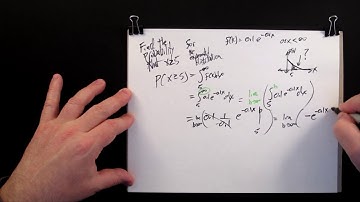 Find the Probability that x≥5 for the exponential distribution
f(x) = 0.1 e^{-0.1x} 0≤x<∞
P(x≥5) = ∫_5^∞ f(x)dx
= ∫_5^∞ 0.1e^{-0.1x}dx = lim_{b→∞} (∫_5^b 0.1e^{-0.1x}dx)
= lim_{b→∞} (0.1 1/-0.1 e^{-0.1x} |_5^b) = lim_{b→∞} (-e^{-0.1x}